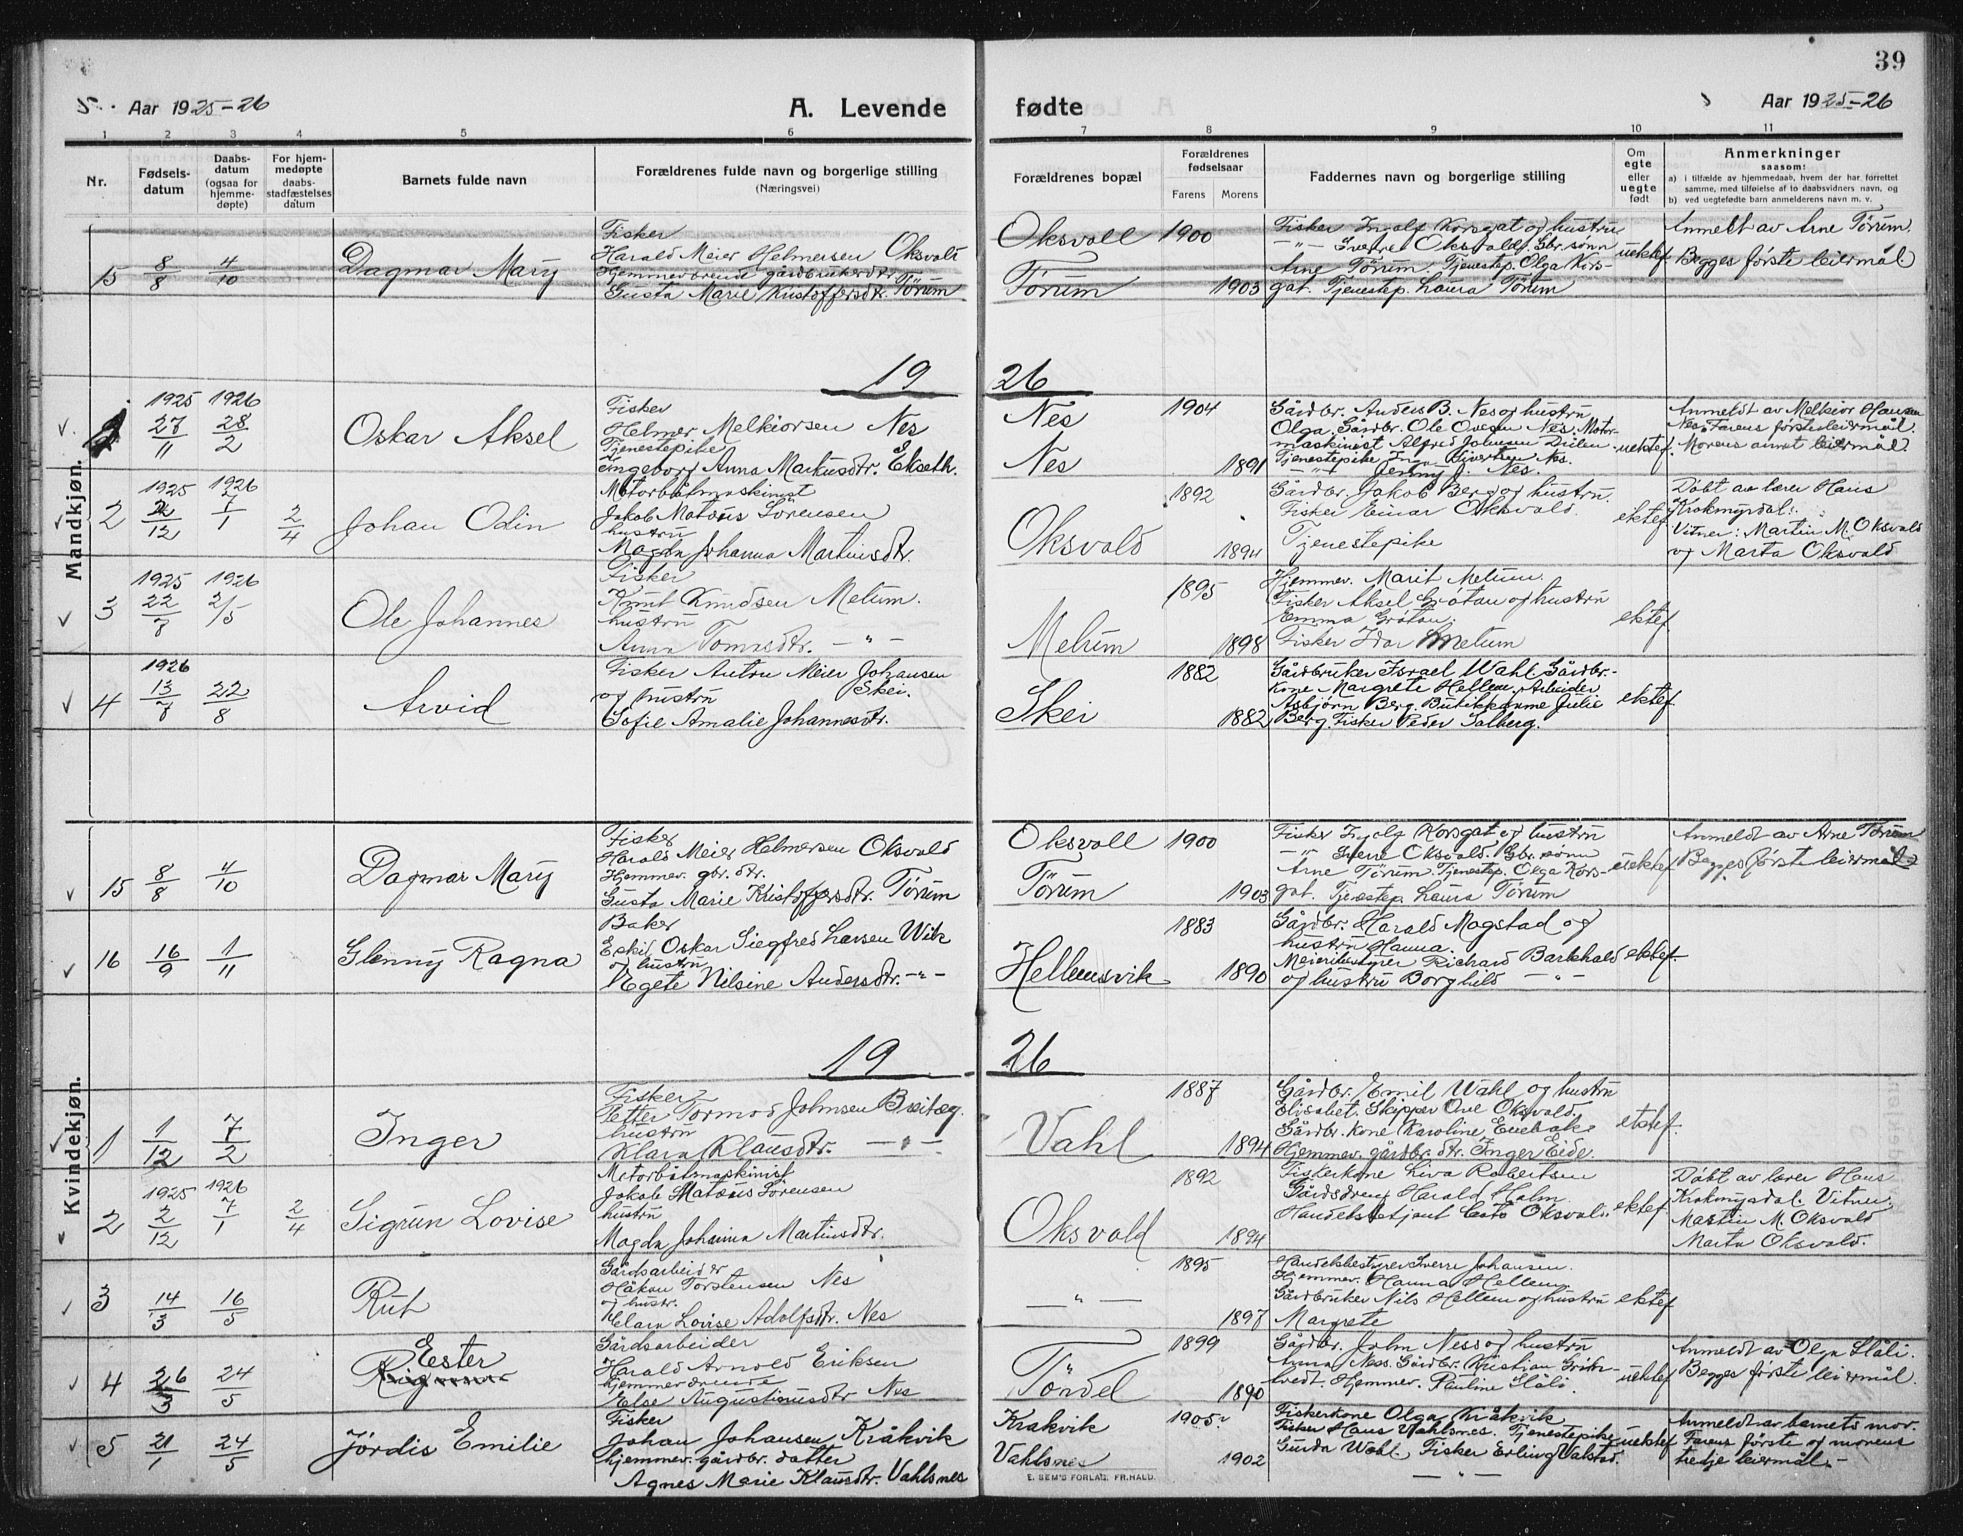 39
5. Aar 1925-26 A. Levende fødte Aar 1925-26
1 2 3 4 5 6 7 8 9 10 11
Nr.
Fødselsdatum
Daabsdatum (ogsaa for hjemmedøpte)
For hjemmedøpte daabsstadfæstelses datum
Barnets fulde navn
Forældrenes fulde navn og borgerlige stilling
(Næringsvei)
Forældrenes bopæl
Forældrenes fødselsaar
Farens Morens
Faddernes navn og borgerlige stilling
Om egte eller uegte født
Anmerkninger
saasom:
a) i tilfælde av hjemmedaab, hvem der har forrettet samme, med tilføielse af to daabsvidners navn, og
b) ved uegtefødte barn anmelderens navn m. v.
15 8/8 4/10 Dagmar Mary
Fisker
Harald Meier Helmersen Oksvold
Hjemmeværende gårdbrukerdtr.
Gusta Marie Kristoffersdtr. Tórum
Oksvoll 1900
Tórum 1903
Fisker Ingolf Korsgat og hustru
—"— Sverre Oksvold. Gbr.sønn
Arne Tórum. Tjenestep. Olga Kors-
gat. Tjenestep. Laura Tórum
uektef.
Anmelt av Arne Tórum.
Begges første leiermål
19 26
Mandkjøn.
1925 27/11 1926 28/2 Oskar Aksel
Fisker
Helmer Melkiorsen Nes
Tjenestepike
Ingeborg Anna Markusdtr. Ekseth.
Nes 1904
Nes 1891
Gårdbr. Anders B. Nes og hustru
Olga. Gårdbr. Ole Ovesen Nes. Motor-
maskinist Alfred Johnsen
Tjenestepike Sivertsen Nes.
—"— Jenny J. Nes.
uektef.
Anmeldt av Melkior Hansen
Nes. Farens første leiermål.
Morens annet leiermål.
2 1925 2/12 1926 7/1 2/4 Johan Odin
Motorbåtmaskinist
Jakob Matæus Sørensen
hustru
Magda Johanna Martinsdtr.
Oksvold 1892 1894
Gårdbr. Jakob Berg og hustru.
Fisker Einar Oksvold.
Tjenestepike
ektef.
Døbt av lærer Hans
Krokmyrdal.
Vitner: Martin M. Oksvold
og Marta Oksvold
3 1925 22/8 1926 2/5 Ole Johannes
Fisker
Knut Knudsen Melum.
hustru
Anna Tomasdtr. —"—
Melum 1895 1898
Hjemmev. Marit Melum.
Fisker Aksel Gråtan og hustru
Emma Gråtan.
Fisker Idar Melum
ektef.
4 1926 13/7 22/8 Arvid
Fisker Anton Meier Johansen
og hustru Skei.
Sofie Amalie Johannesdtr.
Skei 1882 1882
Gårdbruker Israel Wahl Gårdbr.
kone Margrete Hellem. Arbeider
Asbjørn Berg. Butikkdame Julie
Berg. Fisker Peder Solberg.
ektef.
15 8/8 4/10 Dagmar Mary
Fisker
Harald Meier Helmersen Oksvold
Hjemmev. gbr. dtr.
Gusta Marie Kristoffersdtr. Tórum
Oksvoll 1900
Tórum 1903
Fisker Ingolf Korsgat og hustru
—"— Sverre Oksvold. Gbr. sønn
Arne Tórum. Tjenestep. Olga Kors-
gat. Tjenestep. Laura Tórum
uektef.
Anmeldt av Arne Tórum
Begges første leiermål
16 16/9 1/11 Glenny Ragna
Baker
Eskild Oskar Siegfred Larsen Wik
og hustru
Agete Nilsine Andersdtr. —"—
Hellemsvik 1883 1890
Gårdbr. Harald Magstad og
hustru Hanna.
Meieribestyrer Richard Barkhald
og hustru Borghild —"—
ektef.
19 26
Kvindekjøn.
1 1/12 7/2 Inger
Fisker
Petter Tormod Johnsen Breitæg.
hustru
Klara Klausdtr. —"—
Vahl 1887 1894
Gårdbr. Emil Wahl og hustru
Elisabet. Skipper Ove Oksvold.
Gårdbr. kone Karoline
Hjemmev. gårdbr. dtr. Inger Eide.
ektef.
2 1925 2/12 1926 7/1 2/4 Sigrun Lovise
Motorbåtmaskinist
Jakob Matæus Sørensen
hustru
Magda Johanna Martinsdtr.
Oksvold 1892 1894
Fiskerkone Liva Robertsen
Gårdsdreng Harald Holm.
Handelsbetjent Oksvold.
ektef.
Døbt av lærer Hans
Krokmyrdal. Vitner:
Martin M. Oksvold
Marta Oksvold.
3 14/3 16/5 Rut
Gårdsarbeider
Håkon Torstensen Nes
og hustr.
Klara Lovise Adolfsdtr. Nes
—"— 1895 1897
Handelsbestyrer Sverre Johansen.
Hjemmev. Hanna Hellem.
Gårdbruker Nils Hellem og hustru
Margrete
ektef.
4 26/3 24/5 Eester
Gårdsarbeider
Harald Arnold Eriksen
hjemmeværende
Else Augustinusdtr. Nes
Tóndel 1899 1890
Gårdbr. John Ness og hustru
Anna Ness. Gårdbr. Kristian
Hjemmev. Pauline Slåli.
uektef.
Anmeldt av Olga Slåli.
Begges første leiermål.
5 21/1 24/5 Jórdis Emilie
Fisker
Johan Johansen Kråkvik
hjemmev. gårdbr. datter
Agnes Marie Klausdtr. Vahlsnes
Krakvik 1905
Vahlsnes 1902
Fiskerkone Olga Kråkvik
Fisker Hans Wahlsnes. Tjenestepike
Gunda Wahl. Fisker Erling Valstad.
—"—
uektef
Anmeldt av barnets mor.
Farens første og morens
tredje leiermål.
E. SEM'S FORLAG, FR.HALD.